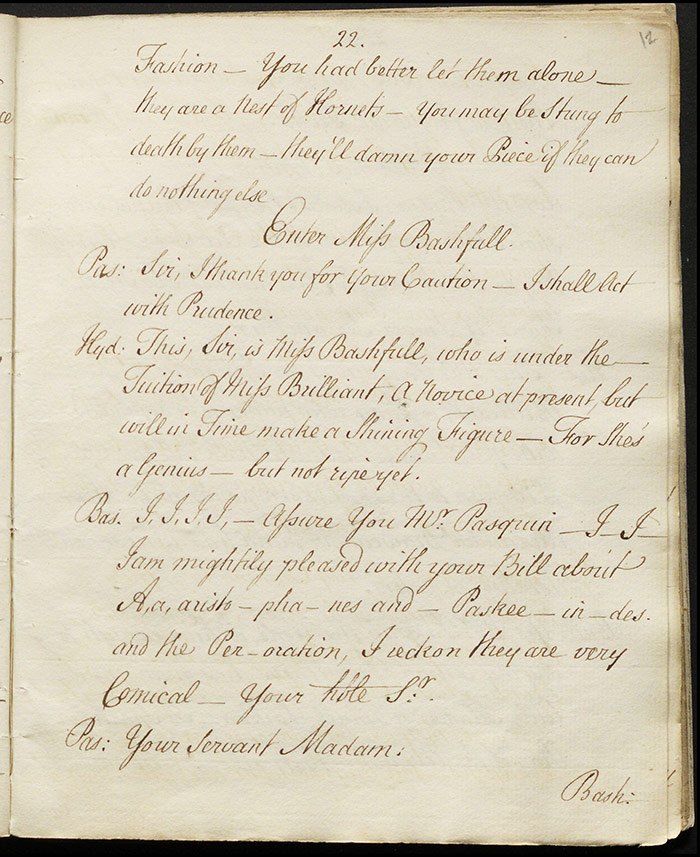 22.
12
Fashion — You had better let them alone —
they are a Nest of Hornets — you may be Stung to
death by them — they'll damn your Piece if they can
do nothing else
Enter Miss Bashfull.
Pas: Sir, I thank you for your Caution — I shall Act
with Prudence.
Hyd: This, Sir, is Miss Bashfull, who is under the —
Tuition of Miss Brilliant, a Novice at present, but
will in Time make a Shining Figure — For She's
a Genius — but not ripe yet.
Bas. I, I, I, I, — Assure You Mr. Pasquin — I — I —
I am mightily pleased with your Bill about
A, a, aristo — pha — nes and — Paskee — in — des.
and the Per — oration, I reckon they are very
Comical — Your hble Sr.
Pas: Your Servant Madam.
Bash: